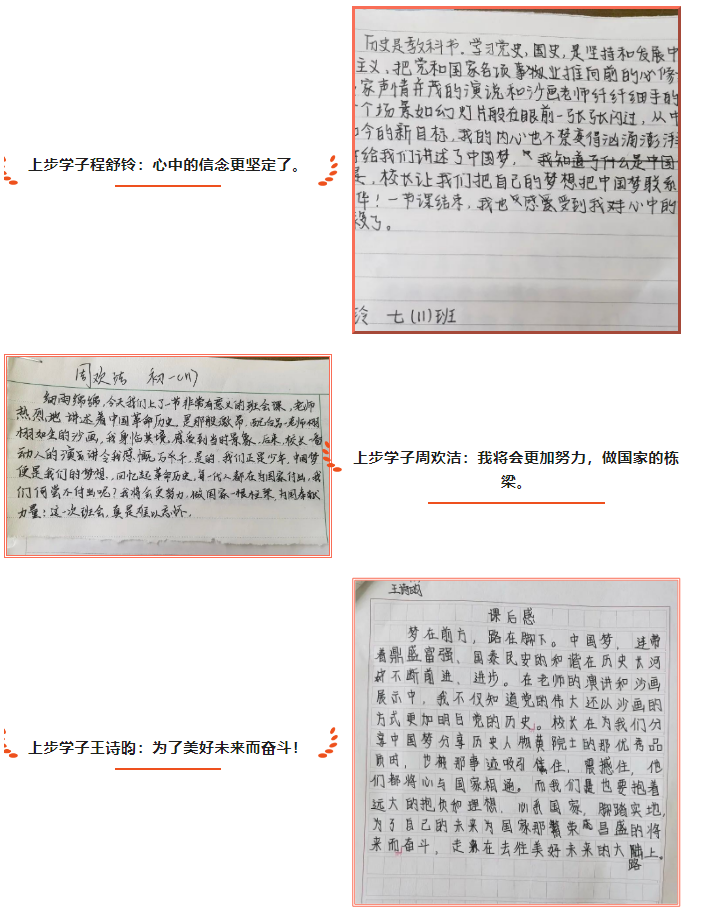 历史是教科书。学习党史、国史,是坚持和发展中
主义、把党和国家各项事业推向前的必修
家声情并茂的演说和沙画老师纤纤细手的
个场景如幻灯片般在眼前一张张闪过,从中
今的新目标,我的内心也不禁变得汹涌澎湃
给我们讲述了中国梦,我知道了什么是中国
,校长让我们把自己的梦想把中国梦联系
!一节课结束,我也感受到我对心中的
了。
玲 七(11)班
上步学子程舒铃:心中的信念更坚定了。
周欢洁 初一(11)
细雨绵绵,今天我们上了一节非常有意义的班会课,老师
热烈地讲述着中国革命历史,是那般激昂,配合吕老师栩
栩如生的沙画,我身临其境,感受到当时景象。后来,校长一番
动人的演讲令我感慨万千,是的,我们正是少年,中国梦
便是我们的梦想,回忆起革命历史,每一代人都在为国家付出,我
们何尝不付出呢?我将会更努力,做国家一根栋梁,为国奉献
力量!这一次班会,真是难以忘怀。
上步学子周欢洁:我将会更加努力,做国家的栋
梁。
王诗昀
课后感
梦在前方,路在脚下。中国梦,连带
着鼎盛富强、国泰民安的和谐在历史长河
中不断前进、进步。在老师的演讲和沙画
展示中,我不仅知道党的伟大还以沙画的
方式更加明白党的历史。校长在为我们分
享中国梦分享历史人物黄院士的那优秀品
质时,也被那事迹吸引住,震撼住,他
们都将心与国家相通。而我们是也要抱着
远大的抱负和理想,心系国家,脚踏实地,
为了自己的未来为国家那繁荣昌盛的将
来而奋斗,走在去往美好未来的大路上。
上步学子王诗昀:为了美好未来而奋斗!